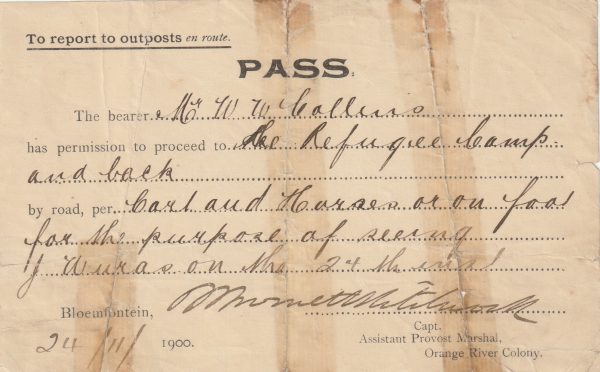 To report to outposts en route.
PASS.
The bearer Mr W W Collins
has permission to proceed to the Refugee Camp
and back
by road, per Cart and Horses or on foot
for the purpose of seeing
J Wuras on the 24th inst
Bloemfontein,
Capt.
24/11/1900.
Assistant Provost Marshal,
Orange River Colony.